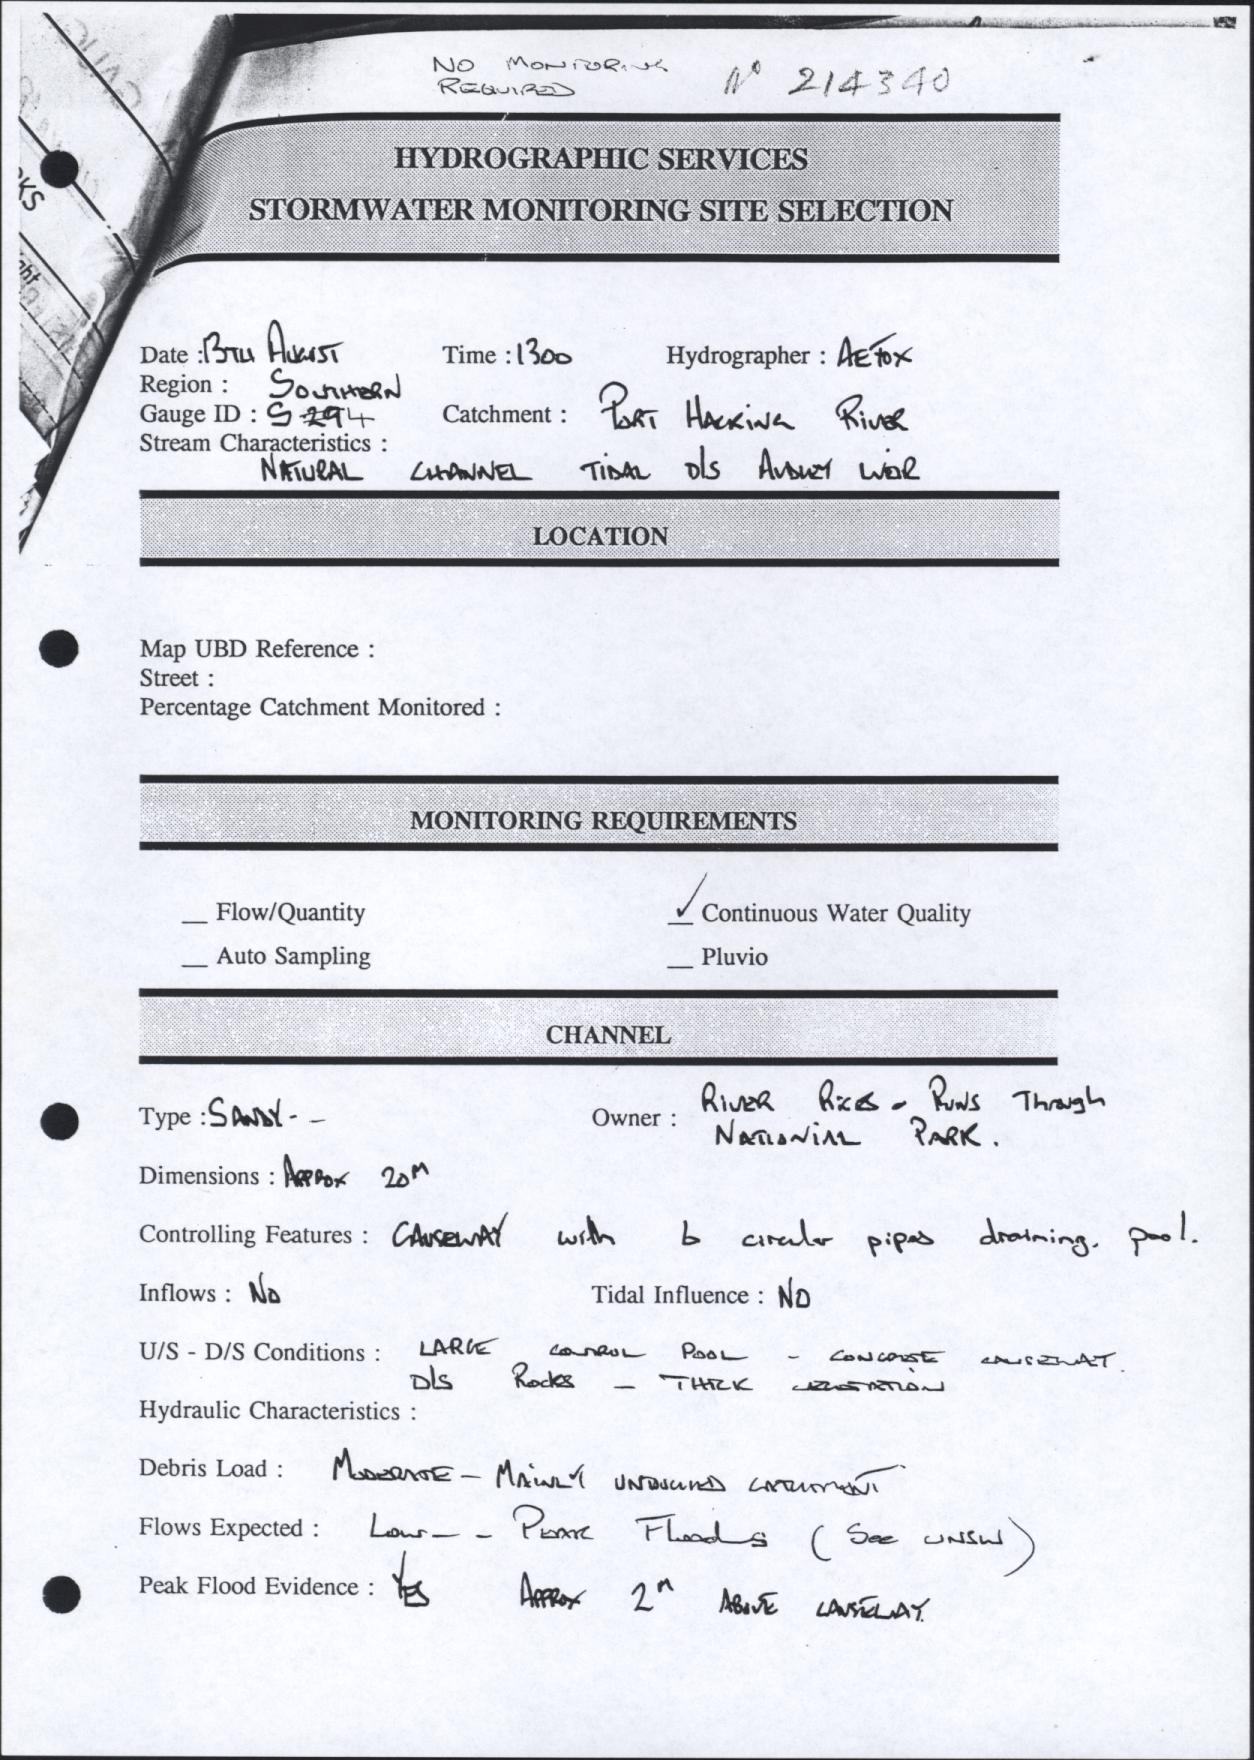 NO MONITORING
REQUIRED
Nº 214340
HYDROGRAPHIC SERVICES
STORMWATER MONITORING SITE SELECTION
Date : 13TH AUGUST Time : 1300 Hydrographer :
Region : SOUTHERN
Gauge ID : S 294 Catchment : PORT HACKING RIVER
Stream Characteristics :
NATURAL CHANNEL TIDAL D/S AUDLEY WEIR
LOCATION
Map UBD Reference :
Street :
Percentage Catchment Monitored :
MONITORING REQUIREMENTS
__ Flow/Quantity ✓ Continuous Water Quality
__ Auto Sampling __ Pluvio
CHANNEL
Type : SANDY - - Owner : RIVER - RUNS Through
NATIONIAL PARK.
Dimensions : APPROX 20M
Controlling Features : CAUSEWAY with 6 circular pipes draining. pool.
Inflows : NO Tidal Influence : NO
U/S - D/S Conditions : LARGE CONTROL POOL - CONCRETE CAUSEWAY.
D/S Rocks - THICK VEGETATION
Hydraulic Characteristics :
Debris Load : MODERATE - MAINLY CATCHMENT
Flows Expected : Low - - PEAK Floods (See UNSW)
Peak Flood Evidence : YES APPROX 2M ABOVE CAUSEWAY.